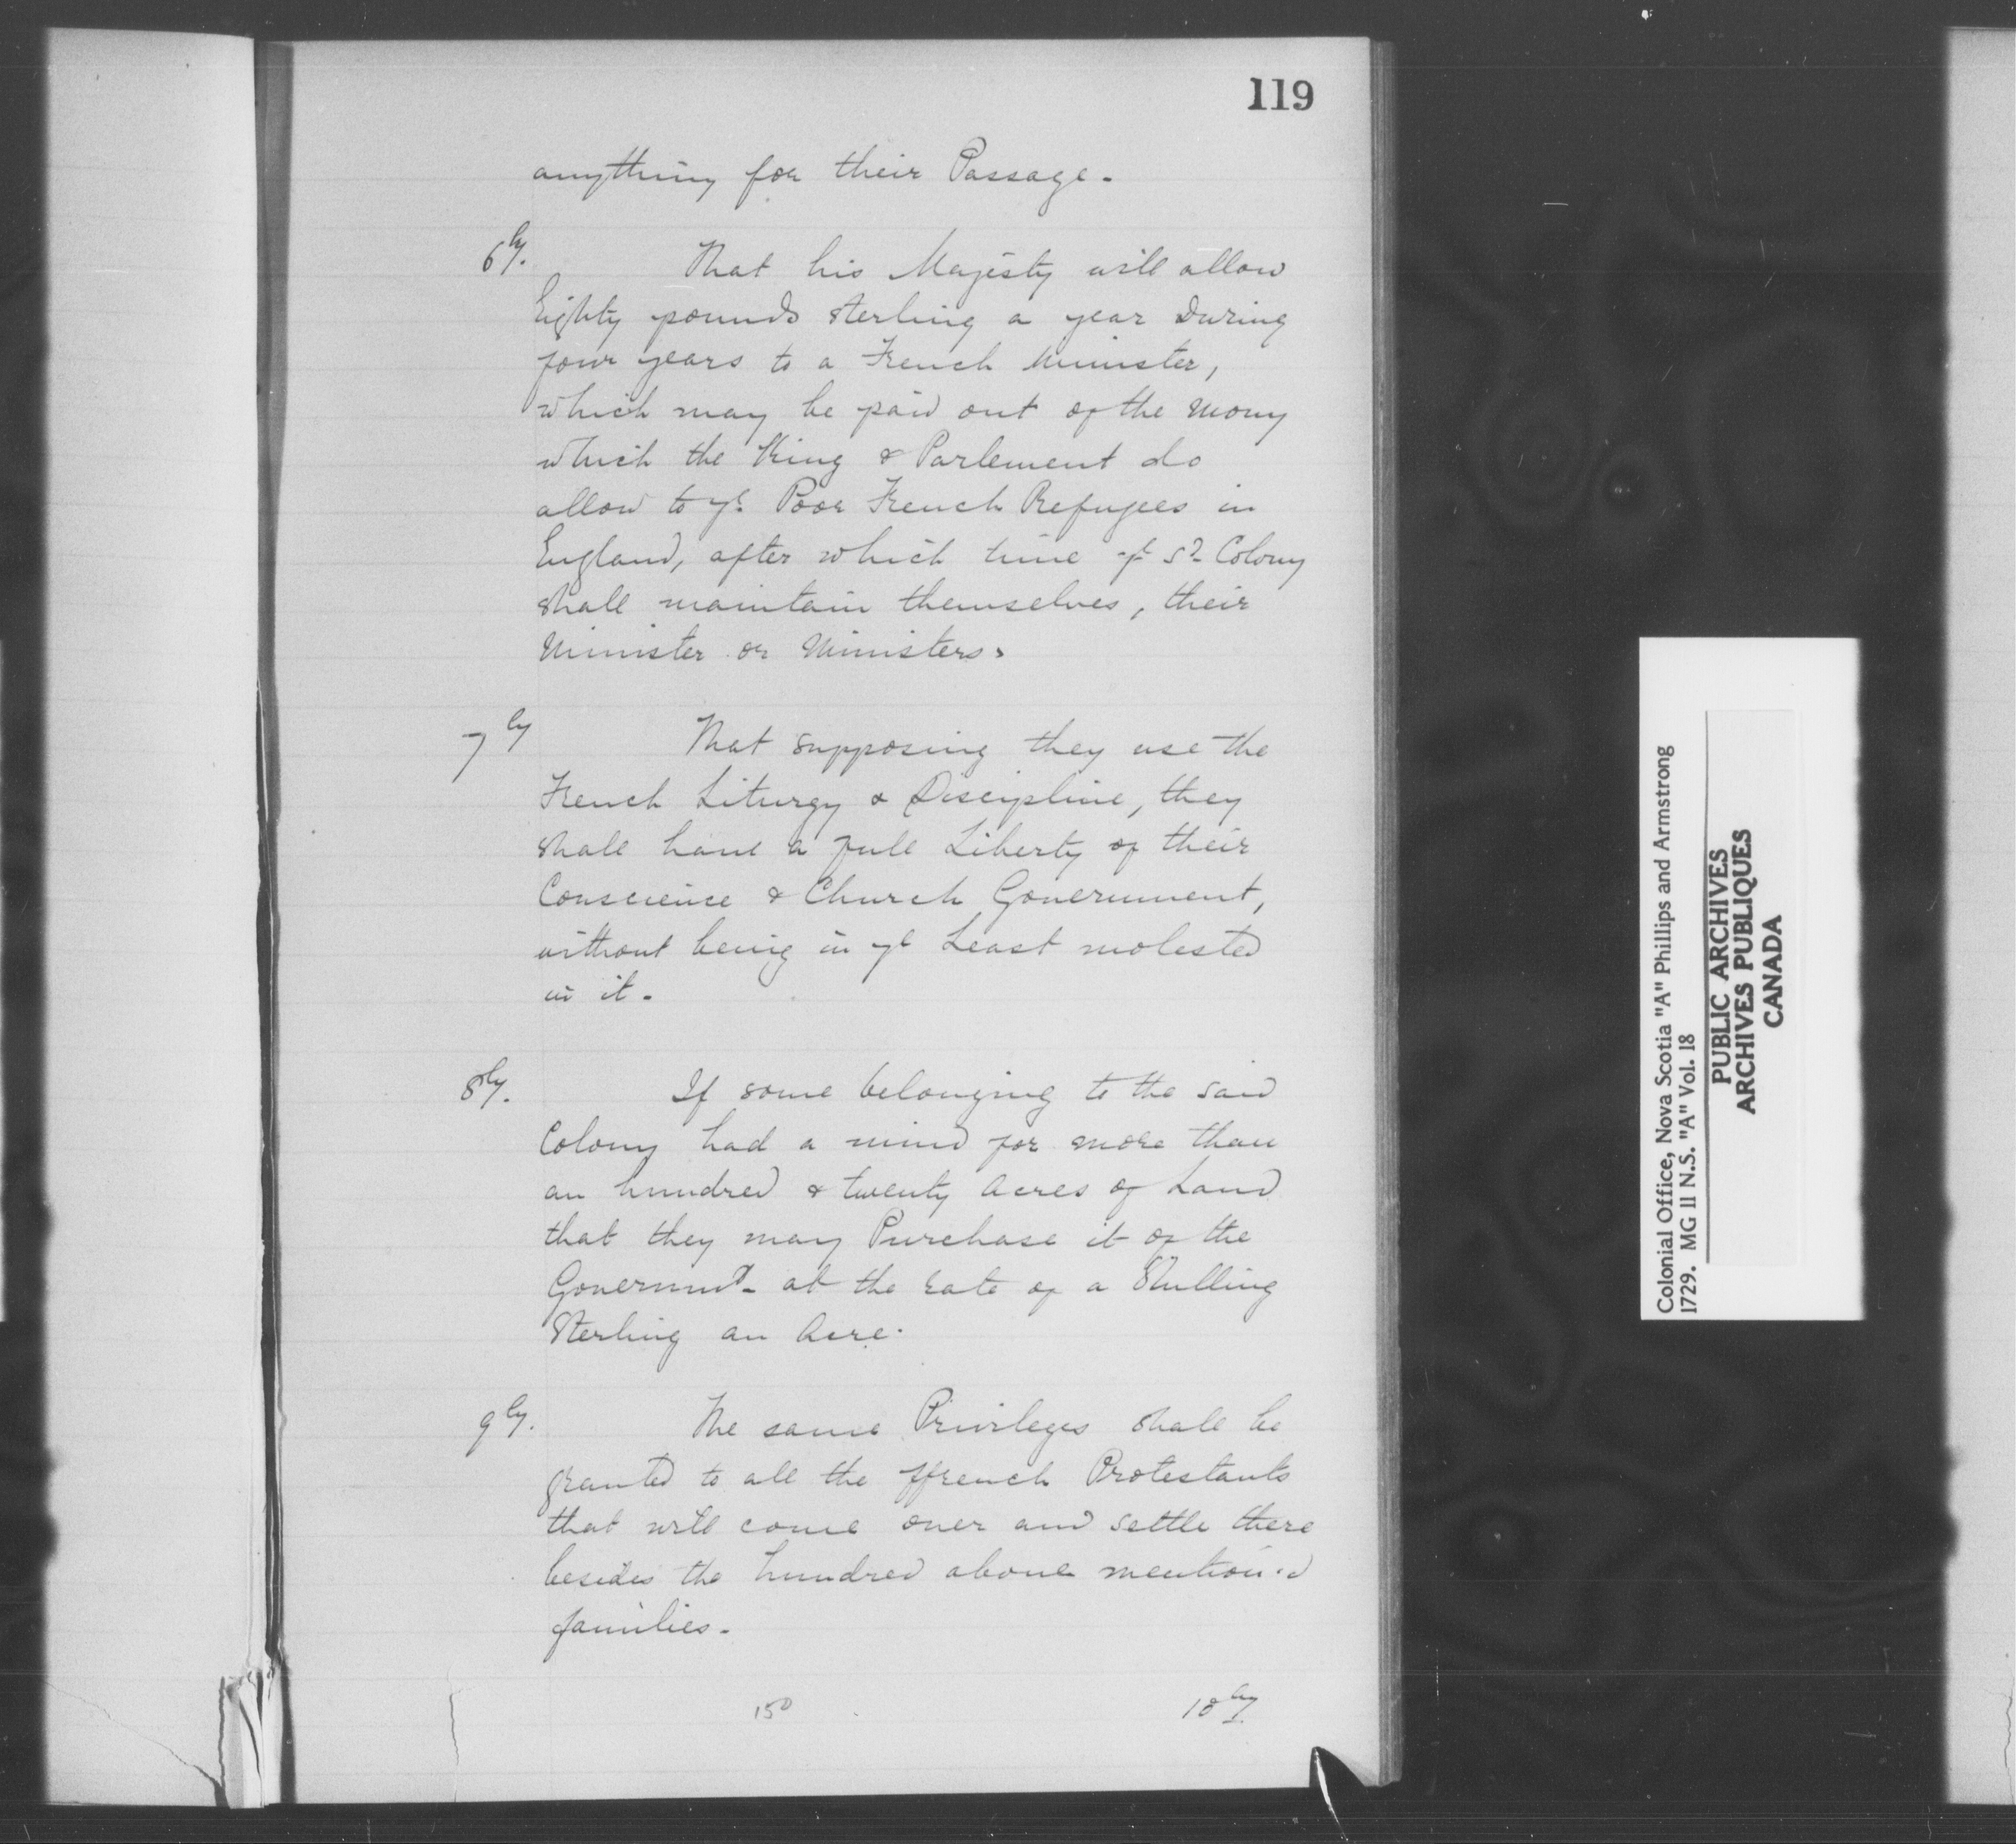 119
anything for their Passage.
6ly. That his Majesty will allow
Eighty pounds sterling a year During
four years to a French Minister,
which may be paid out of the Mony
which the King & Parlement do
allow to ye. Poor French Refugees in
England, after which time ye sd. Colony
shall maintain themselves, their
Minister or Ministers.
7ly That supposing they use the
French Liturgy & Discipline, they
shall have a full Liberty of their
Conscience & Church Government,
without being in ye Least molested
in it.
8ly. If some belonging to the said
Colony had a mind for more than
an hundred & twenty Acres of Land
that they may Purchase it of the
Governmt. at the rate of a Shilling
Sterling an Acre.
9ly. The same Privileges shall be
granted to all the ffrench Protestants
that will come over and settle there
besides the hundred above mention'd
families.
150
10ly.
Colonial Office, Nova Scotia "A" Phillips and Armstrong
1729. MG 11 N.S. "A" Vol. 18
PUBLIC ARCHIVES
ARCHIVES PUBLIQUES
CANADA